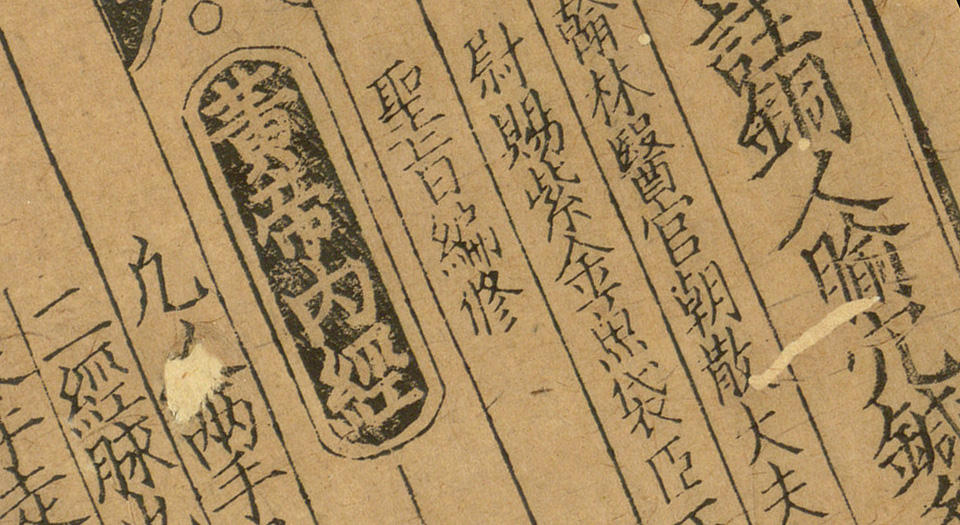 註銅人腧穴鍼
翰林醫官朝散大夫
尉賜紫金魚袋臣王
聖旨編修
黃帝內經
凡 兩手
二經脉
手走